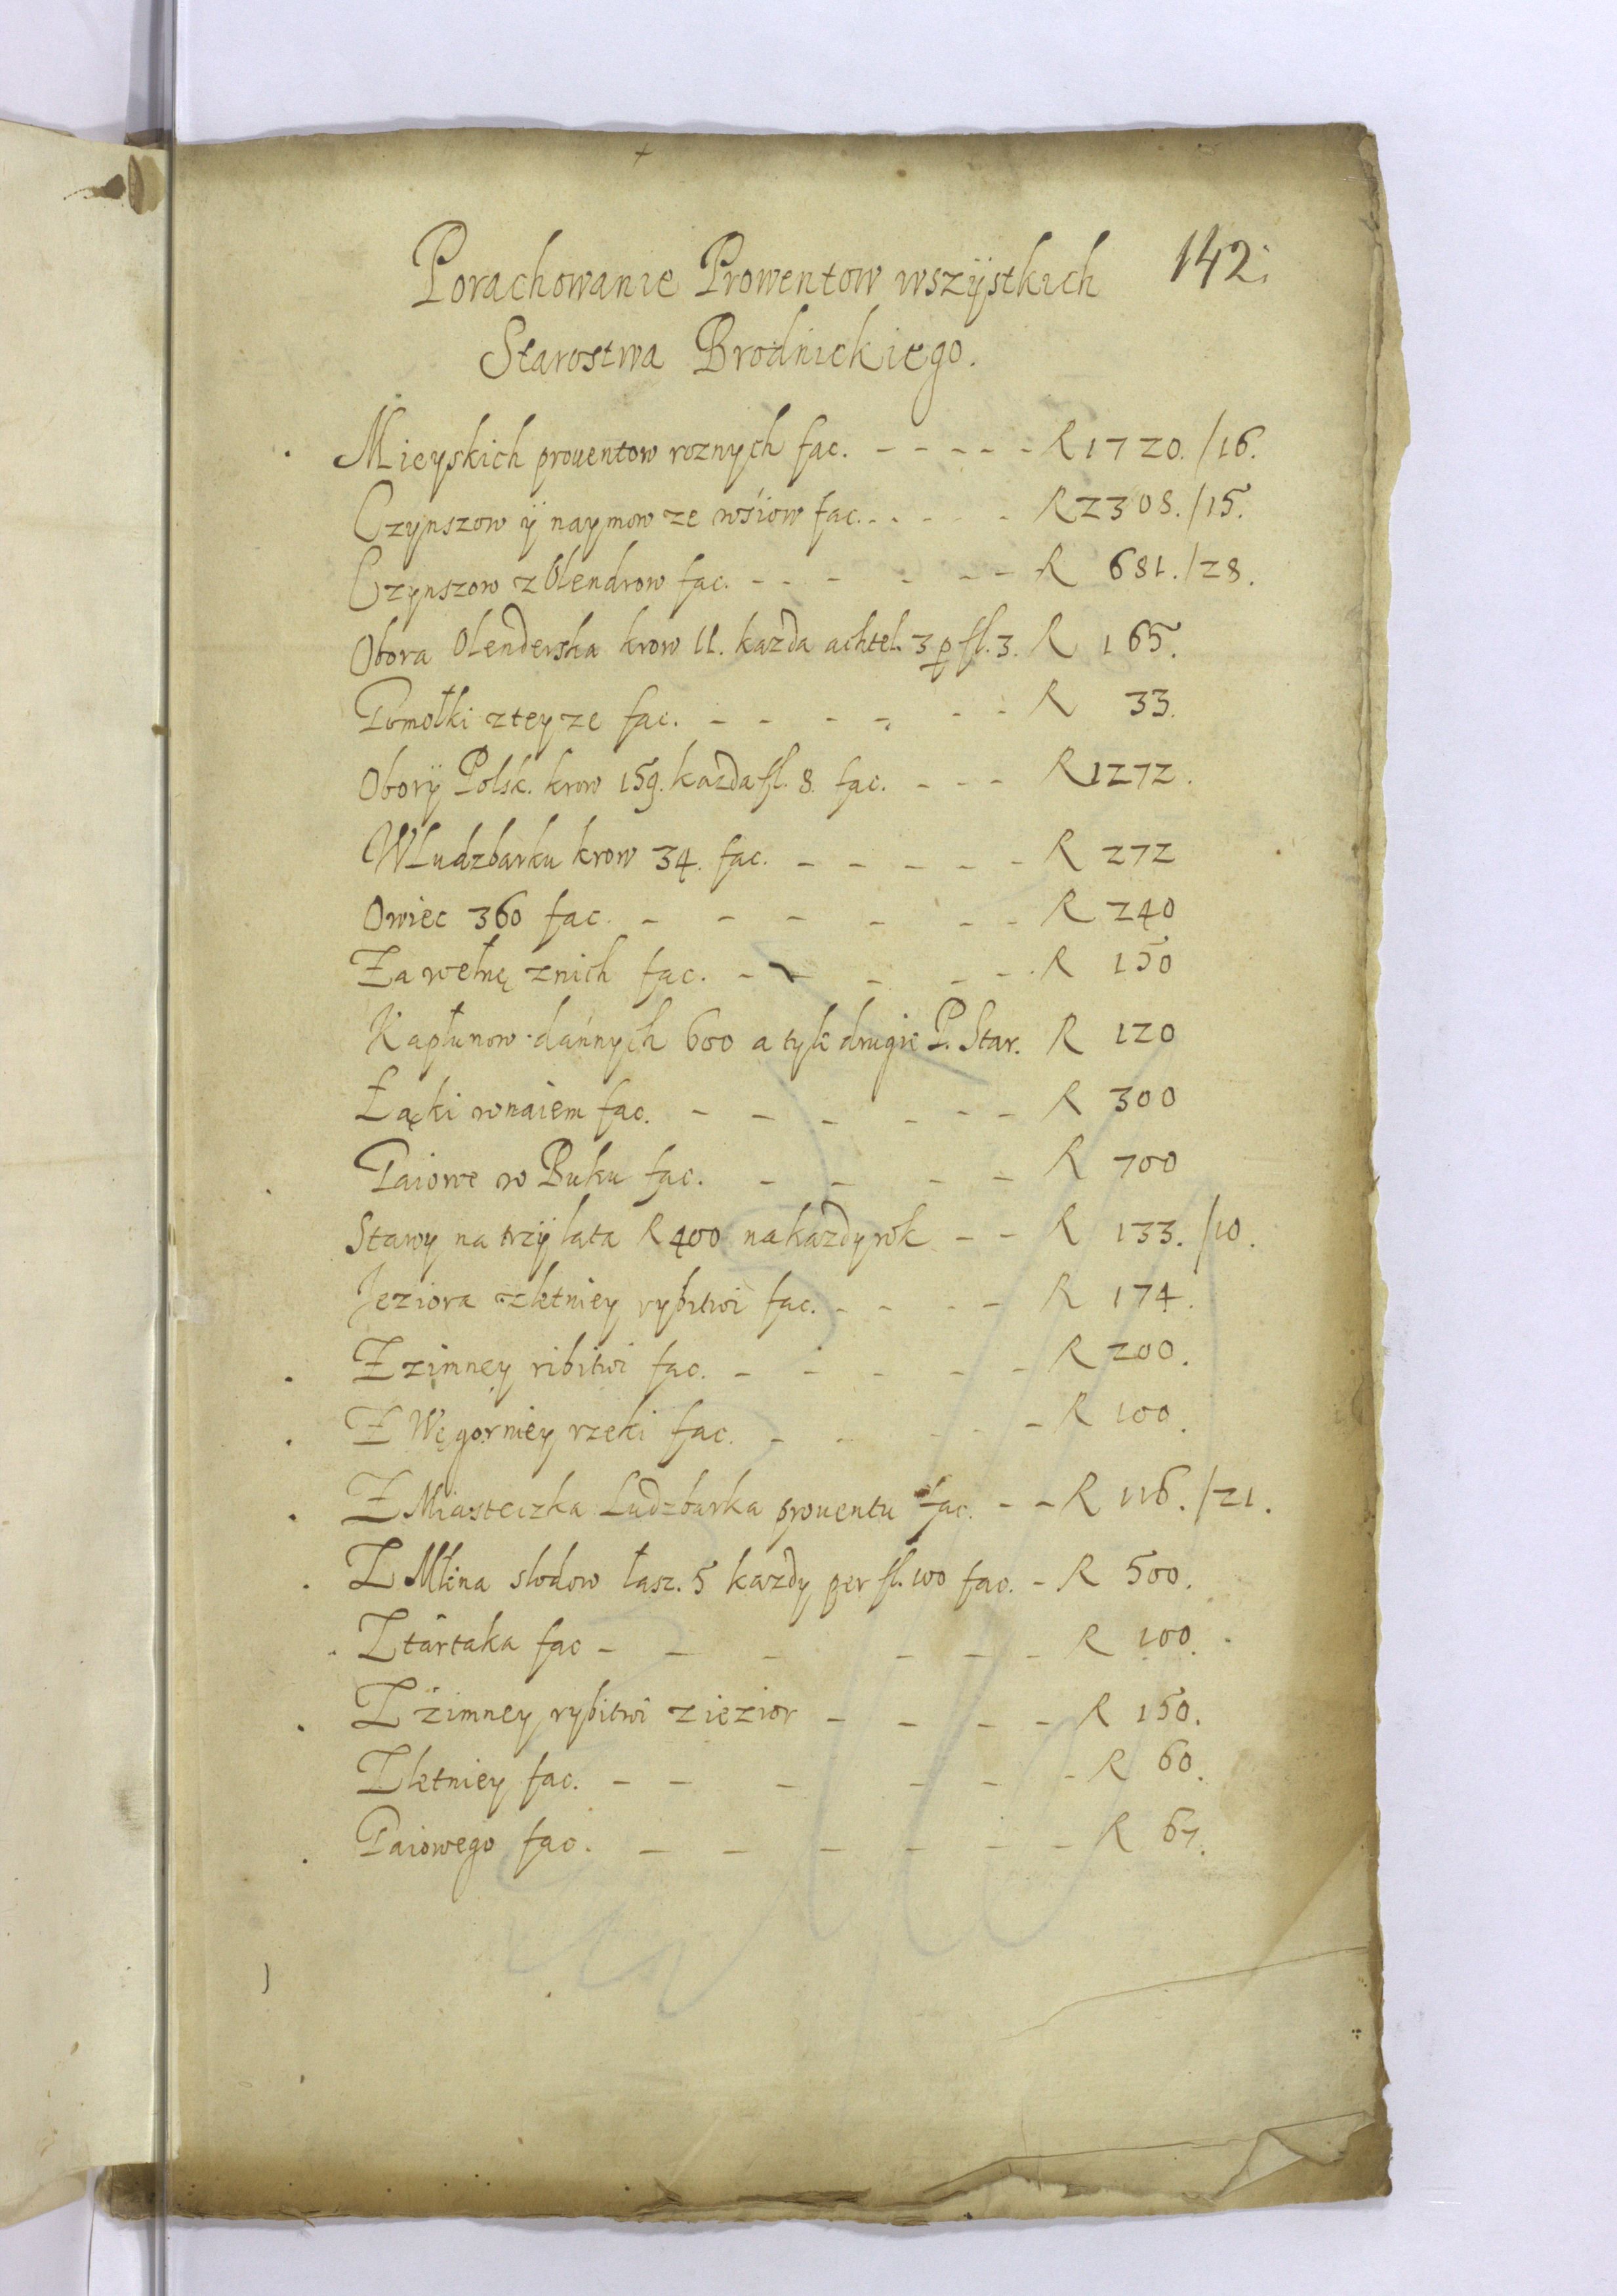 142.
Porachowanie Prowentow wszÿstkich
Starostwa Brodnickiego.
Mieyskich prouentow roznych fac. - - - - - R 1720./16.
Czynszow ÿ naymow ze wśiow fac. - - - - - R 2308./15.
Czynszow z Olendrow fac. - - - - - - R 681./28.
Obora Olenderska krow 11. kazda achtel. 3 p fl. 3. R 165.
Pomołki z teyze fac. - - - - - - R 33.
Oborÿ Polsk. krow 159. kazda fl. 8. fac. - - - R 1272.
W Ludzbarku krow 34. fac. - - - - - R 272
Owiec 360 fac. - - - - - - R 240
Za wełnę znich fac. - - - - - R 150
Kapłunow dańnych 600 a tyle drugie P. Star. R 120
Łąki wnaiem fac. - - - - - - R 300
Paiowe w Buku fac. - - - - R 700
Stawy na trzÿ lata R 400 na kazdy rok - - R 133./10.
Jeziora z letniey rybitwi fac. - - - - R 174.
Z zimney ribitwi fac. - - - - - R 200.
Z Węgorniey rzeki fac. - - - - - R 100.
Z Miasteczka Ludzbarka prouentu fac. - - R 116./21.
Z Młina słodow łasz. 5 kazdy per fl. 100 fac. - R 500.
Z tartaka fac - - - - - - R 100.
Z zimney rybitwi z iezior - - - - R 150.
Z letniey fac. - - - - - - R 60.
Paiowego fac. - - - - - - - R 67.